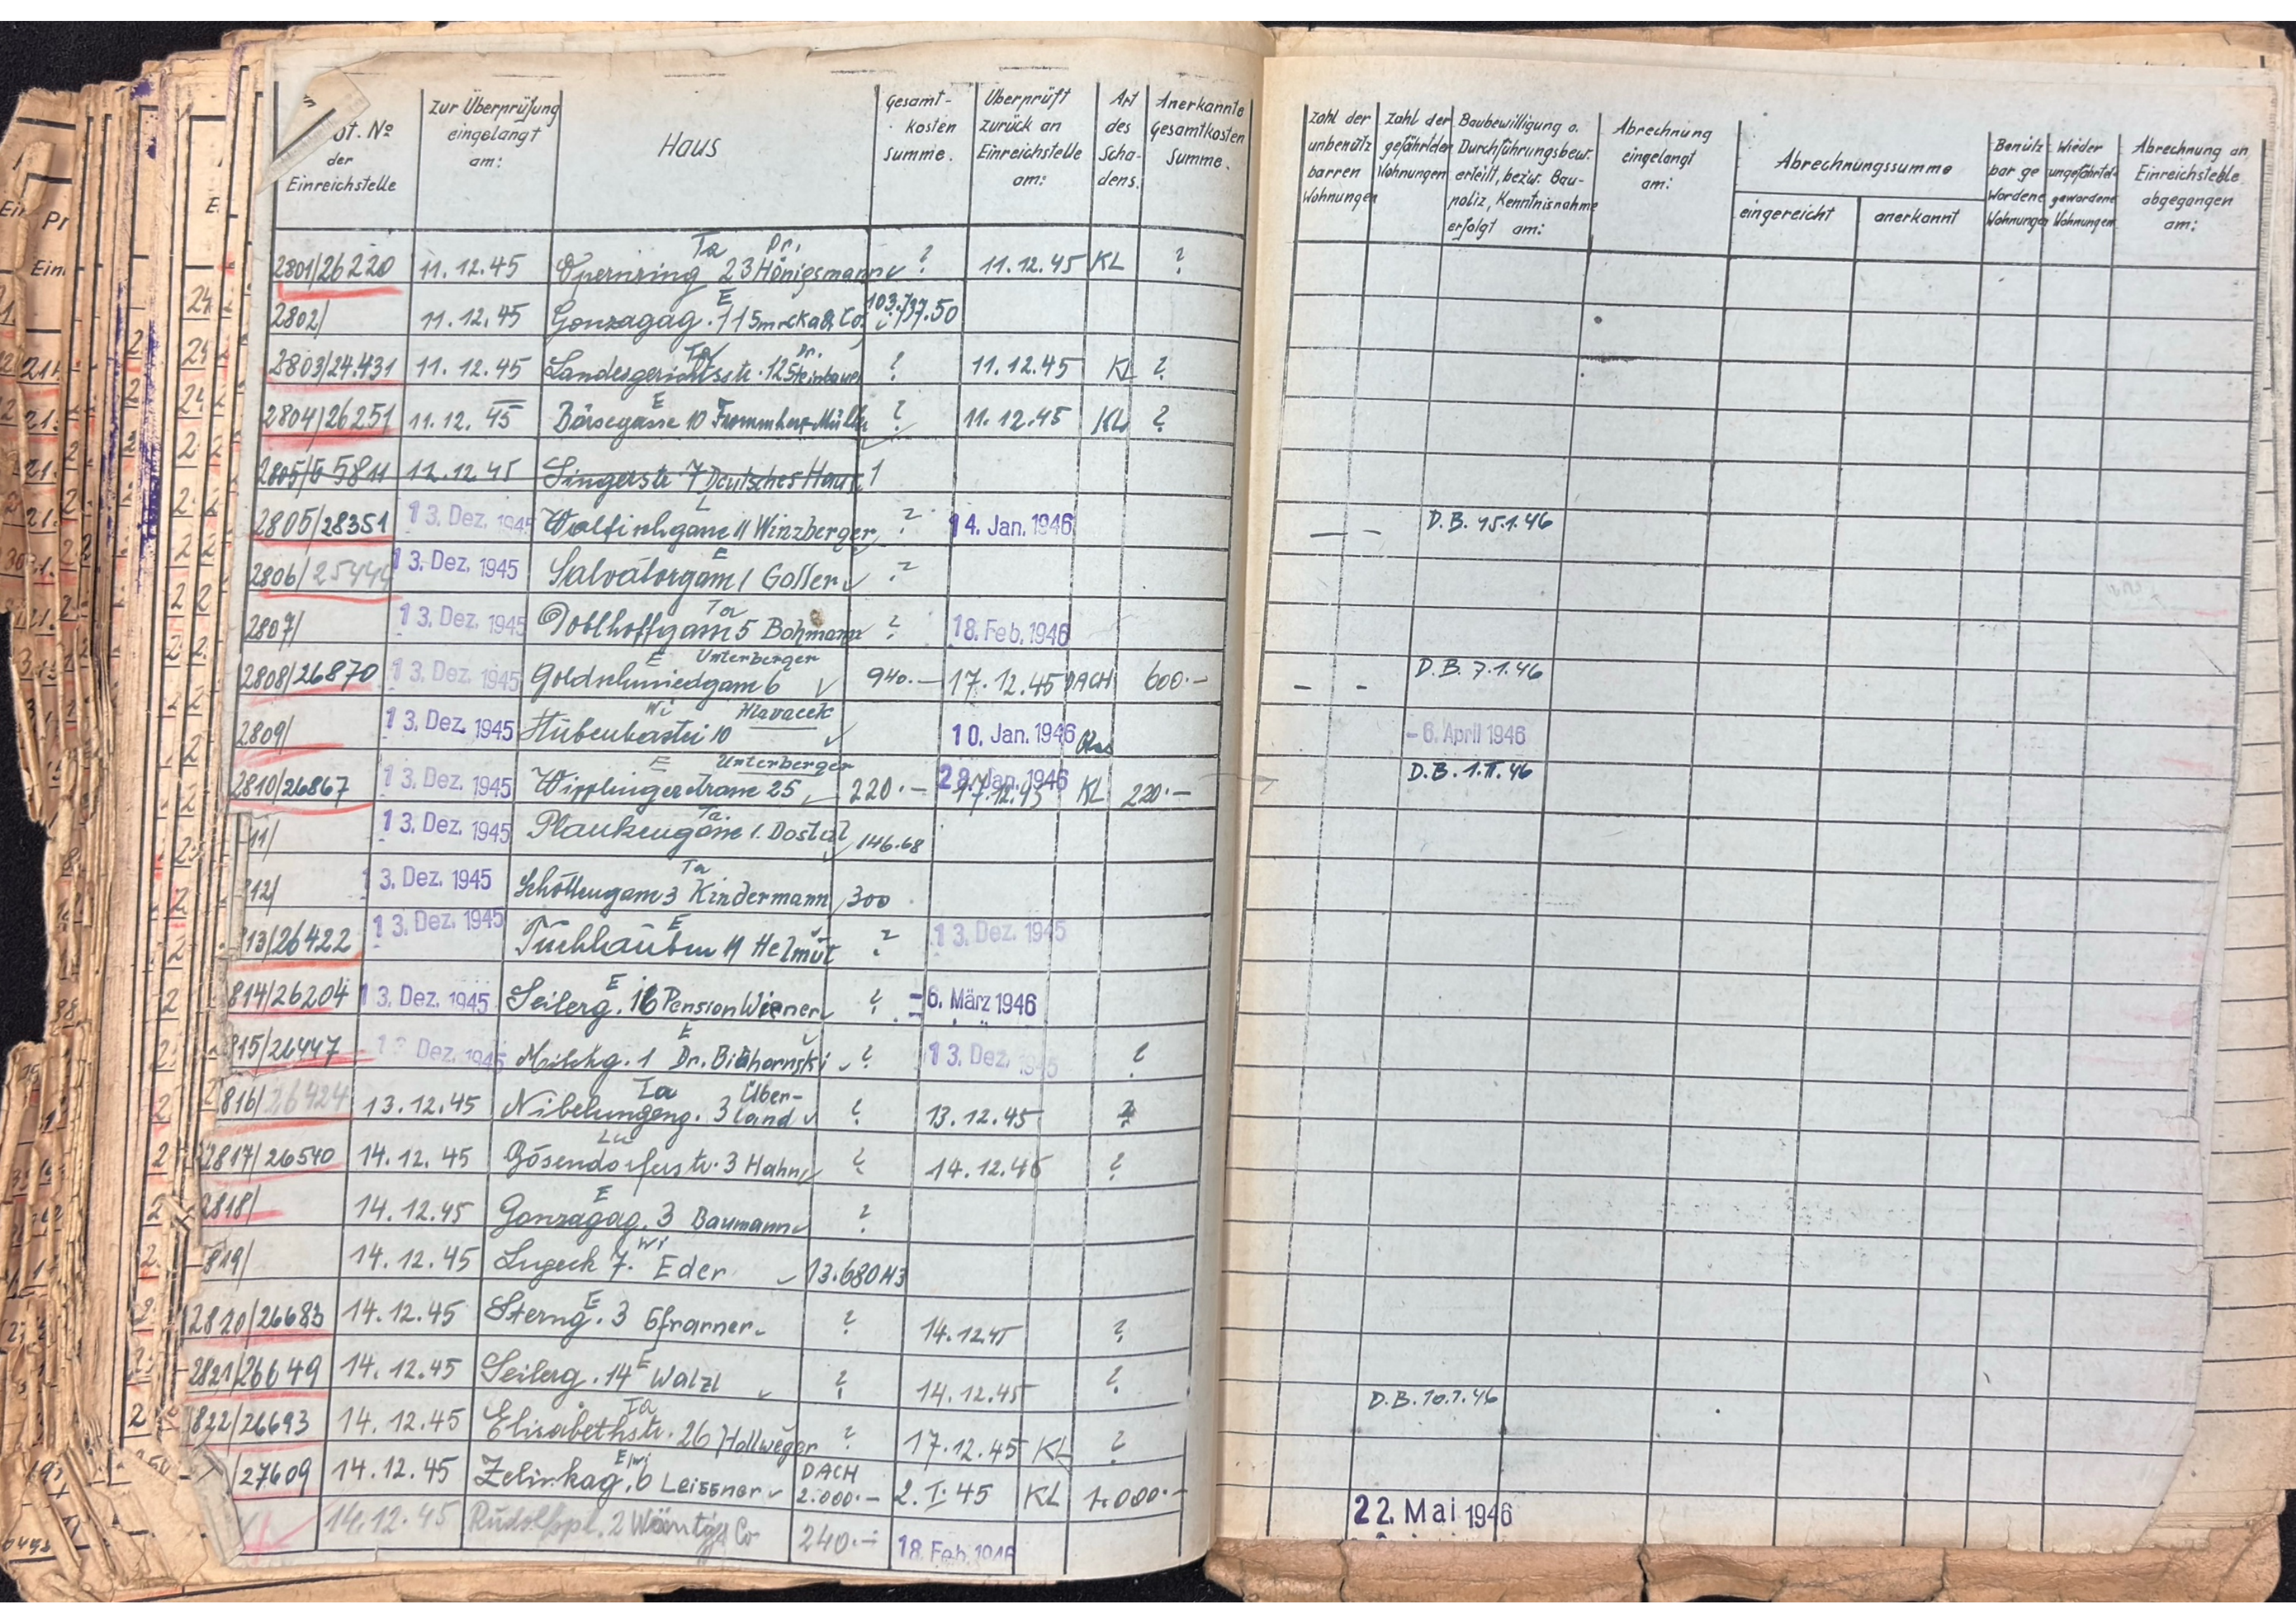 Zur Überprüfung eingelangt am:
Haus
Gesamt-kosten summe.
Überprüft zurück an Einreichstelle am:
Art des Scha-dens.
Anerkannte Gesamtkosten Summe.
Zahl der unbenütz barren Wohnungen
Zahl der gefährdeten Wohnungen
Baubewilligung o. Durchführungsbew. erteilt, bezw. Bau-poliz, Kenntnisnahme erfolgt am:
Abrechnung eingelangt am:
Abrechnungssumme
eingereicht
anerkannt
Benütz bar ge wordene Wohnungen
Wieder gewordene Wohnungen
Abrechnung an Einreichstelle abgegangen am:
№ der Einreichstelle
2801/26220 11.12.45 Opernring 23 Ta Dr. Hönigsmann ? 11.12.45 KL ?
2802/ 11.12.45 Gonzagag. 11 E Smrcka & Co 103.737.50
2803/24.431 11.12.45 Landesgerichtsstr. 12 Ta Dr. Steinbauer ? 11.12.45 KL ?
2804/26251 11.12.45 Börsegasse 10 E ? 11.12.45 KL ?
12.12.45 Singerstr. 7 Deutsches Haus
2805/28351 13. Dez. 1945 Walfischgasse 11 L Winzberger ? 14. Jan. 1946 — — D.B. 15.1.46
2806/25444 13. Dez. 1945 Salvatorgasse 1 E Goller ?
2807/ 13. Dez. 1945 Doblhoffgasse 5 Ta Bohmann ? 18. Feb. 1946
2808/26870 13. Dez. 1945 Goldschmiedgasse 6 E Unterberger 940.— 17.12.45 DACH 600.— – – D.B. 7.1.46
2809/ 13. Dez. 1945 Stubenbastei 10 Wi Hlavacek 10. Jan. 1946 - 6. April 1946
2810/26867 13. Dez. 1945 Wipplingerstrasse 25 E Unterberger 220.— 28. Jan. 1946 17.12.45 KL 220.— D.B. 1.II.46
11/ 13. Dez. 1945 Plankengasse 1. Ta. Dostal 146.68
12/ 13. Dez. 1945 Schottengasse 3 Ta Kindermann 300
13/26422 13. Dez. 1945 Tuchlauben 11 E Helmut ? 13. Dez. 1945
814/26204 13. Dez. 1945 Seilerg. 16 E Pension Wiener ? - 6. März 1946
815/26447 13. Dez. 1945 Milchg. 1 E Dr. ? 13. Dez. 1945 ?
816/26424 13.12.45 Nibelungeng. 3 Ta Über-land ? 13.12.45 ?
2817/26540 14.12.45 Bösendorferstr. 3 Lu Hahn ? 14.12.45 ?
2818/ 14.12.45 Gonzagag. 3 E Baumann ?
819/ 14.12.45 Lugeck 7. Wi Eder 13.680 43
2820/26683 14.12.45 Sterng. 3 E Gfrarner ? 14.12.45 ?
2821/26649 14.12.45 Seilerg. 14 E Walzl ? 14.12.45 ?
822/26693 14.12.45 Elisabethstr. 26 Ta Hollweger ? 17.12.45 KL ? D.B. 10.1.46
/27609 14.12.45 Zelinkag. 6 E/Wi Leissner DACH 2.000.— 2.I.45 KL 1.000.—
14.12.45 Rudolfspl. 2 Co 240.— 18. Feb. 1946 22. Mai 1946